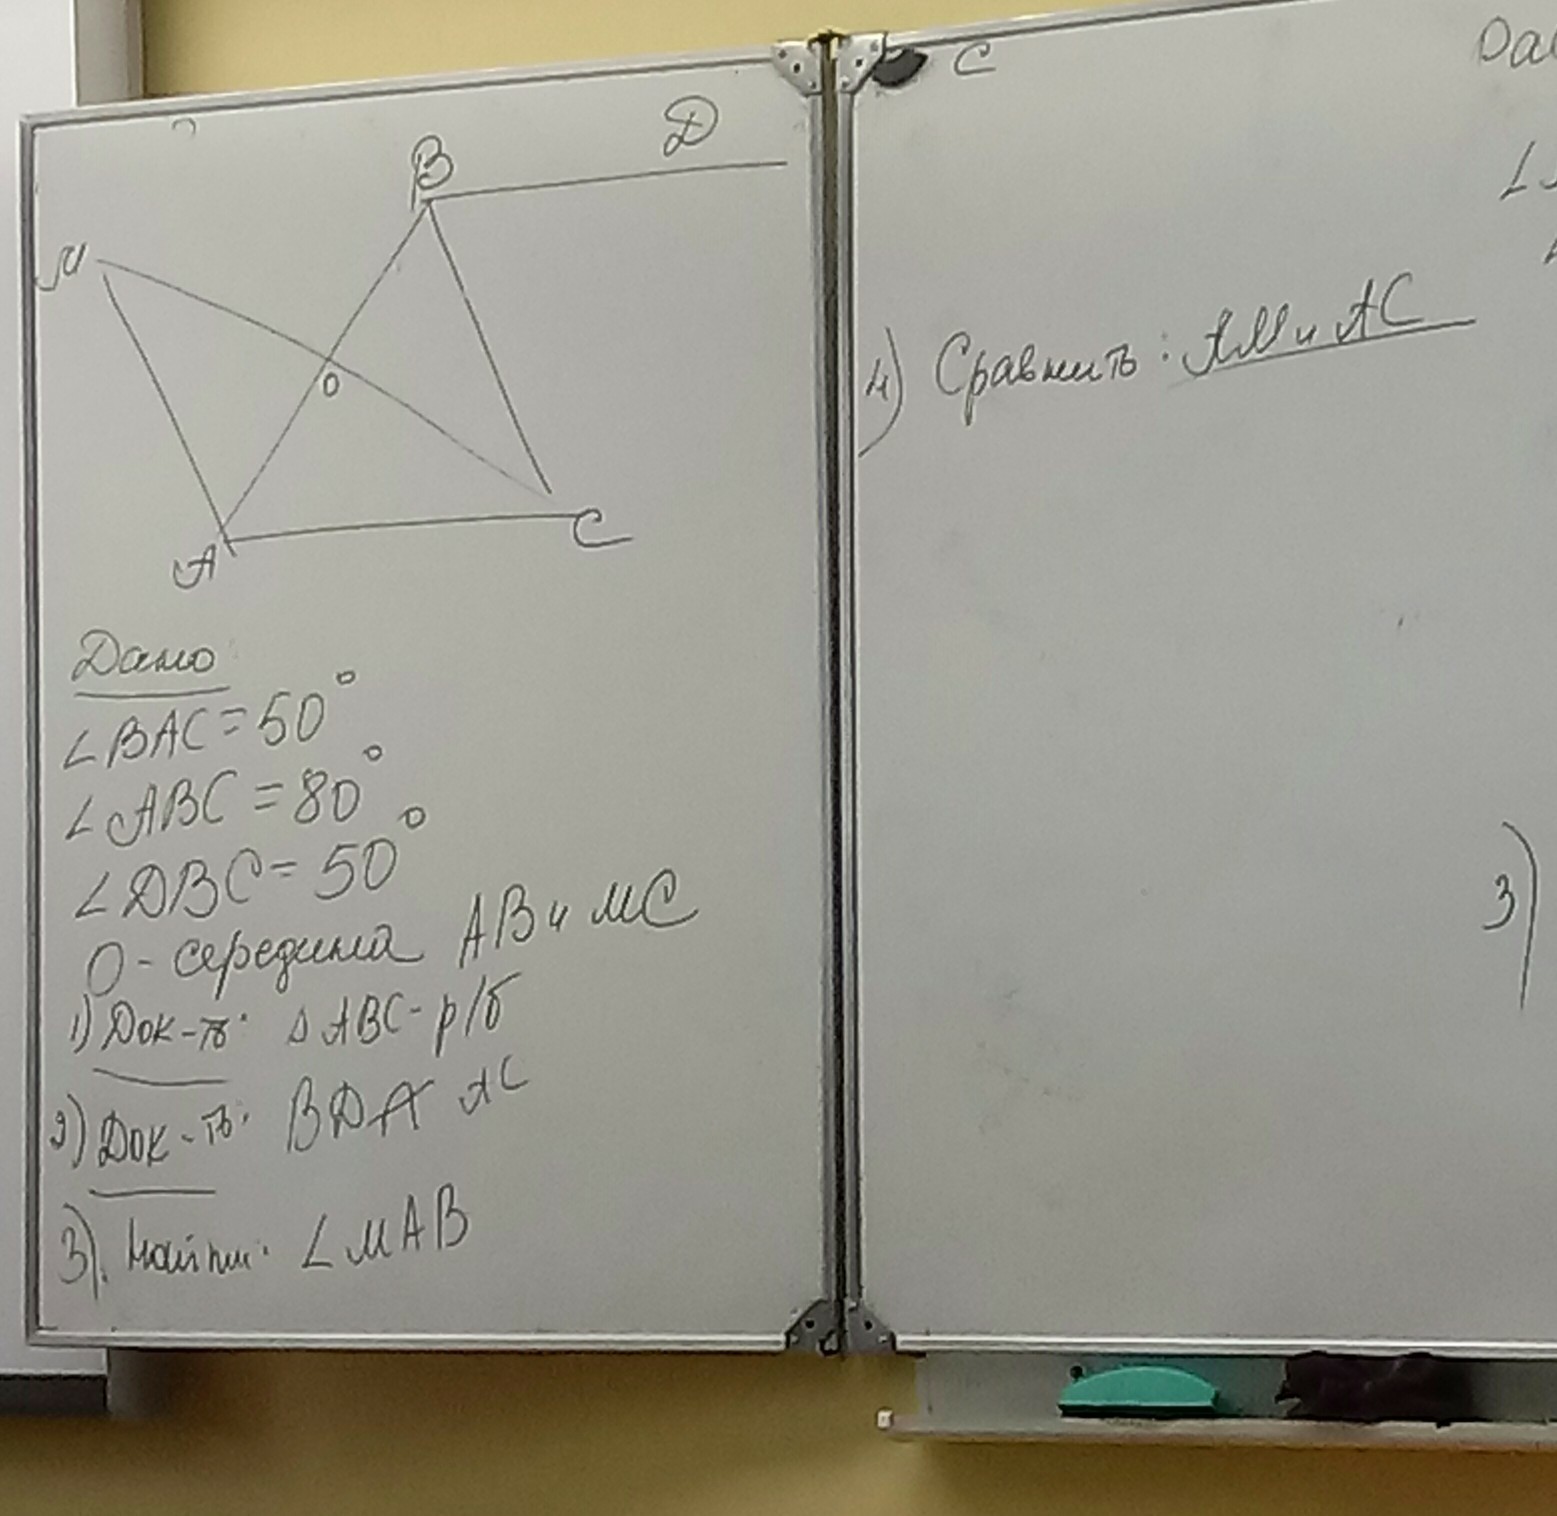 B
D
M
O
A
C
Дано:
∠BAC = 50°
∠ABC = 80°
∠DBC = 50°
O - середина AB и MC
1) Док-ть: △ABC - р/б
2) Док-ть: BD AC
3). Найти: ∠MAB
C
4) Сравнить: AM и AC
3)